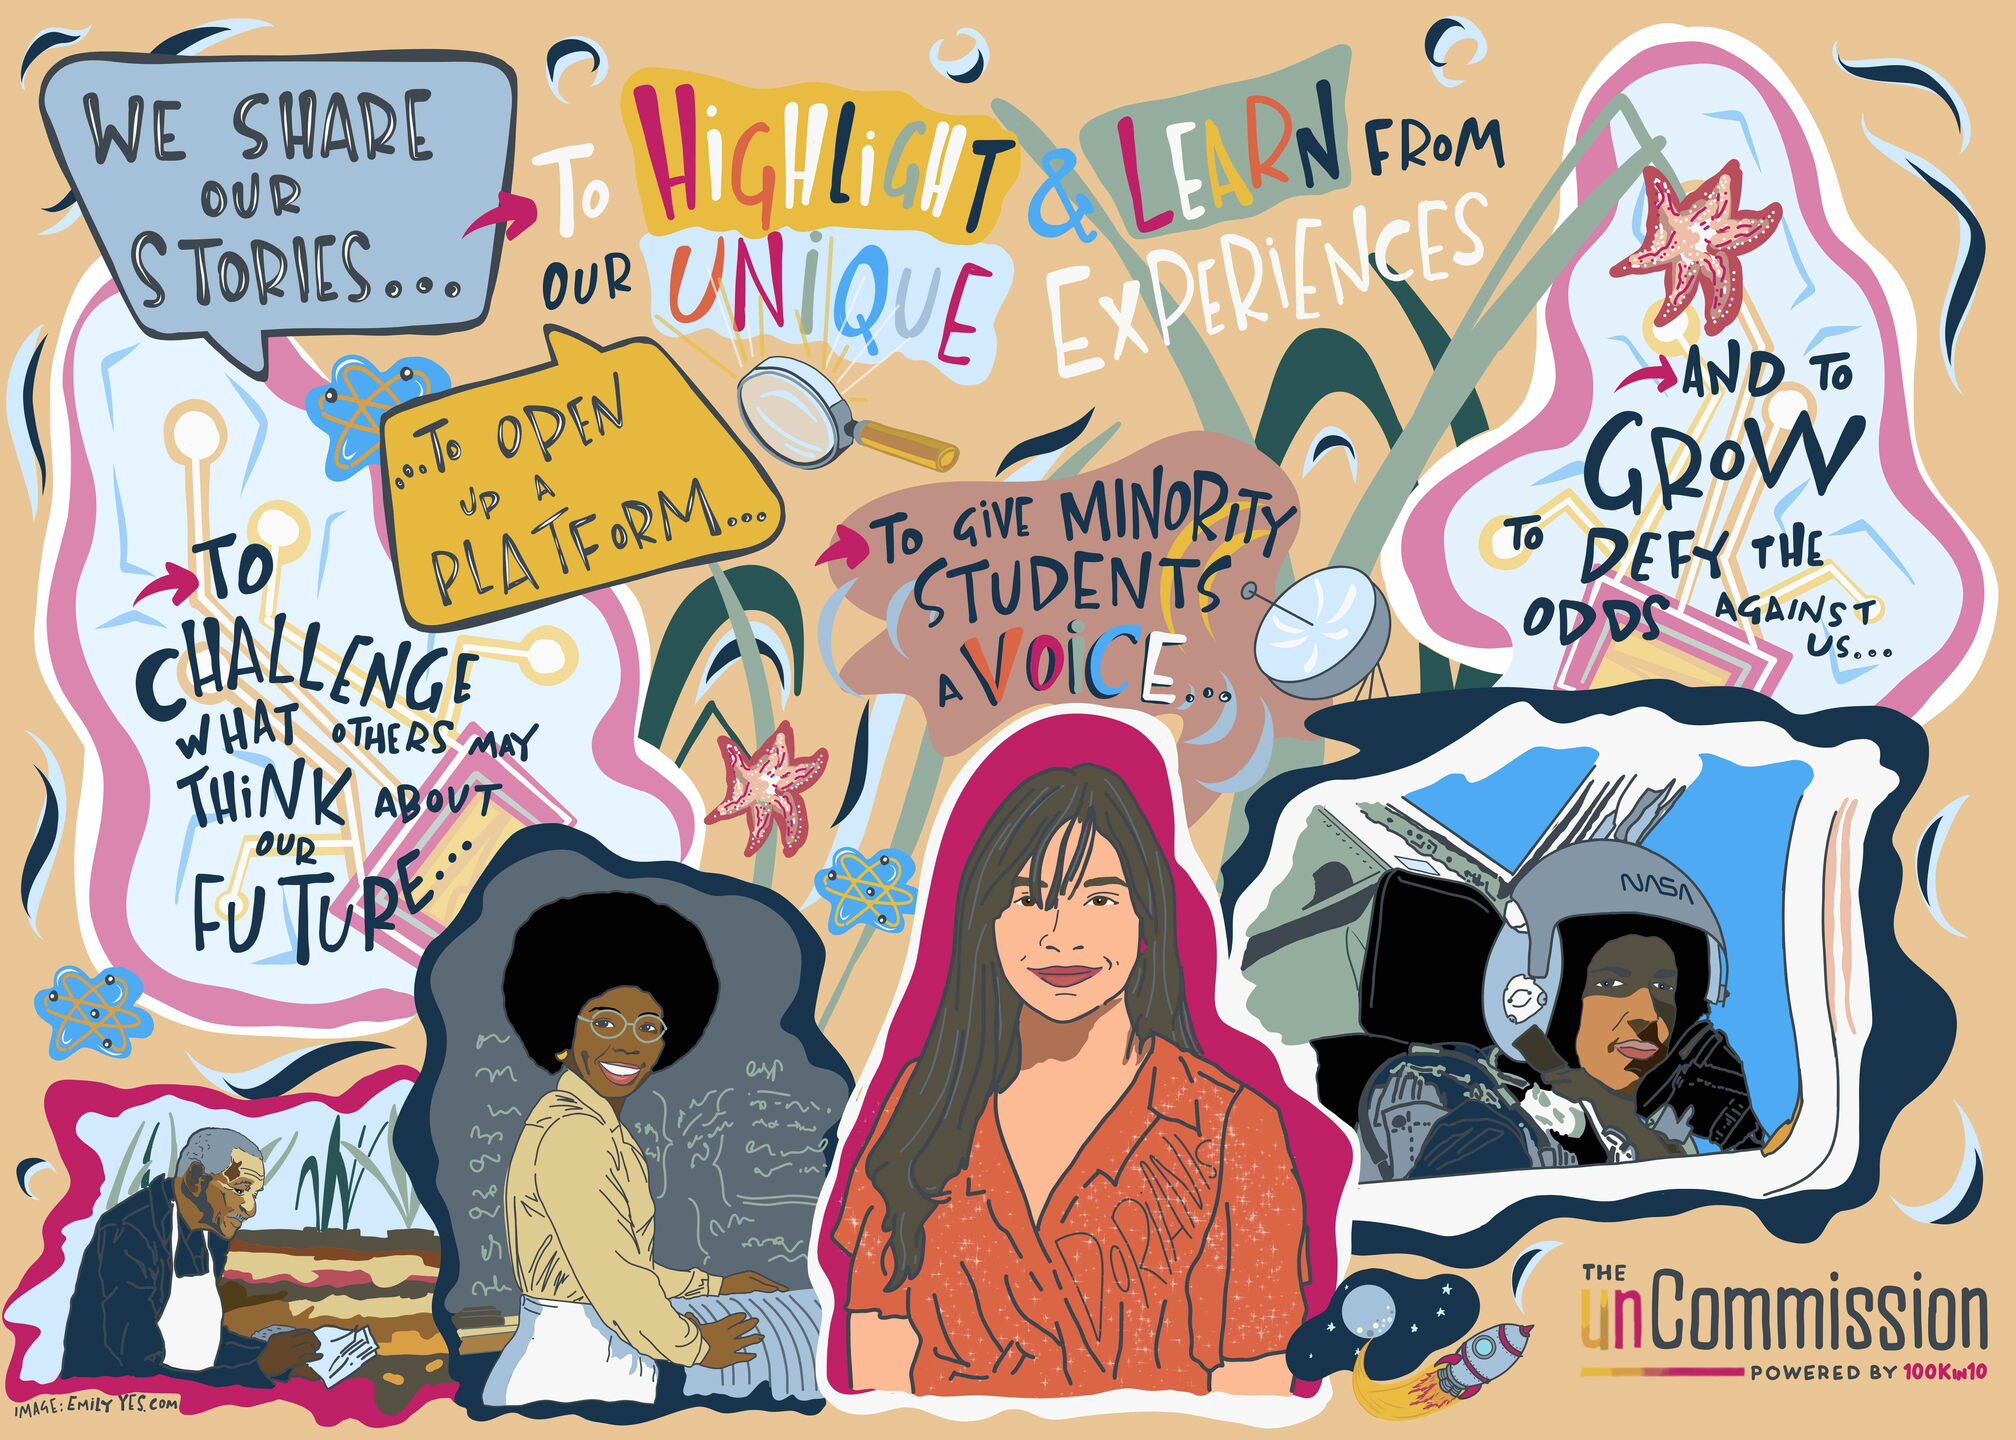 WE SHARE
OUR
STORIES...
TO HIGHLIGHT & LEARN FROM
OUR UNIQUE EXPERIENCES
...TO OPEN
UP A
PLATFORM...
TO GIVE MINORITY
STUDENTS
A VOICE...
AND TO
GROW
TO DEFY THE
ODDS AGAINST
US...
TO
CHALLENGE
WHAT OTHERS MAY
THINK ABOUT
OUR
FUTURE...
NASA
DORIANIS
THE
unCommission
POWERED BY 100Kin10
IMAGE: EMILY YES.COM